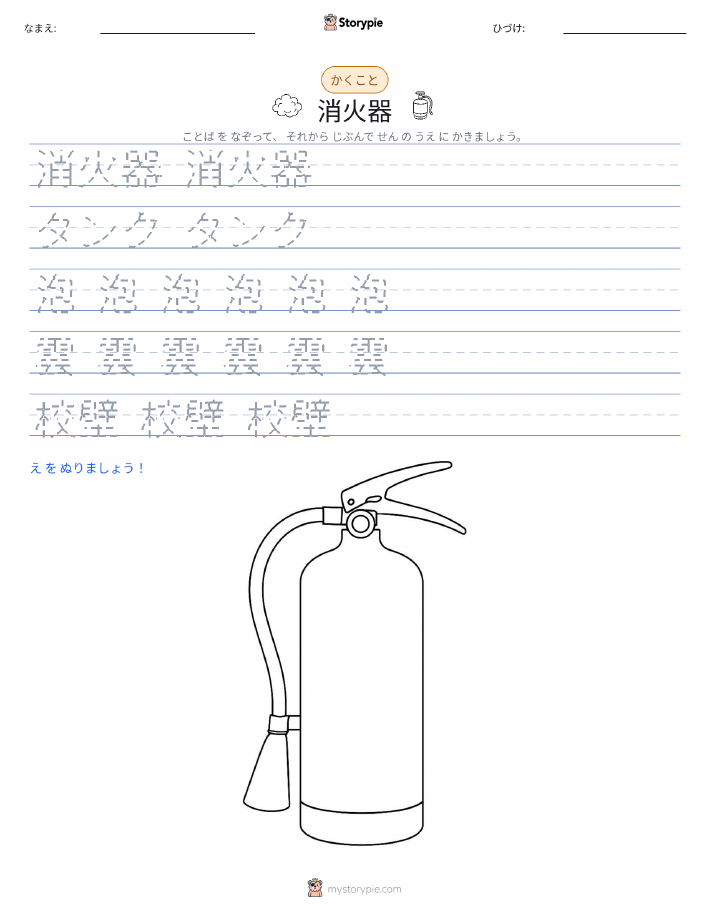 なまえ:
Storypie
ひづけ:
かくこと
消火器
ことば を なぞって、 それから じぶんで せん の うえ に かきましょう。
消火器 消火器
タンク タンク
泡 泡 泡 泡 泡 泡
雲 雲 雲 雲 雲 雲
校壁 校壁 校壁
え を ぬりましょう！
mystorypie.com